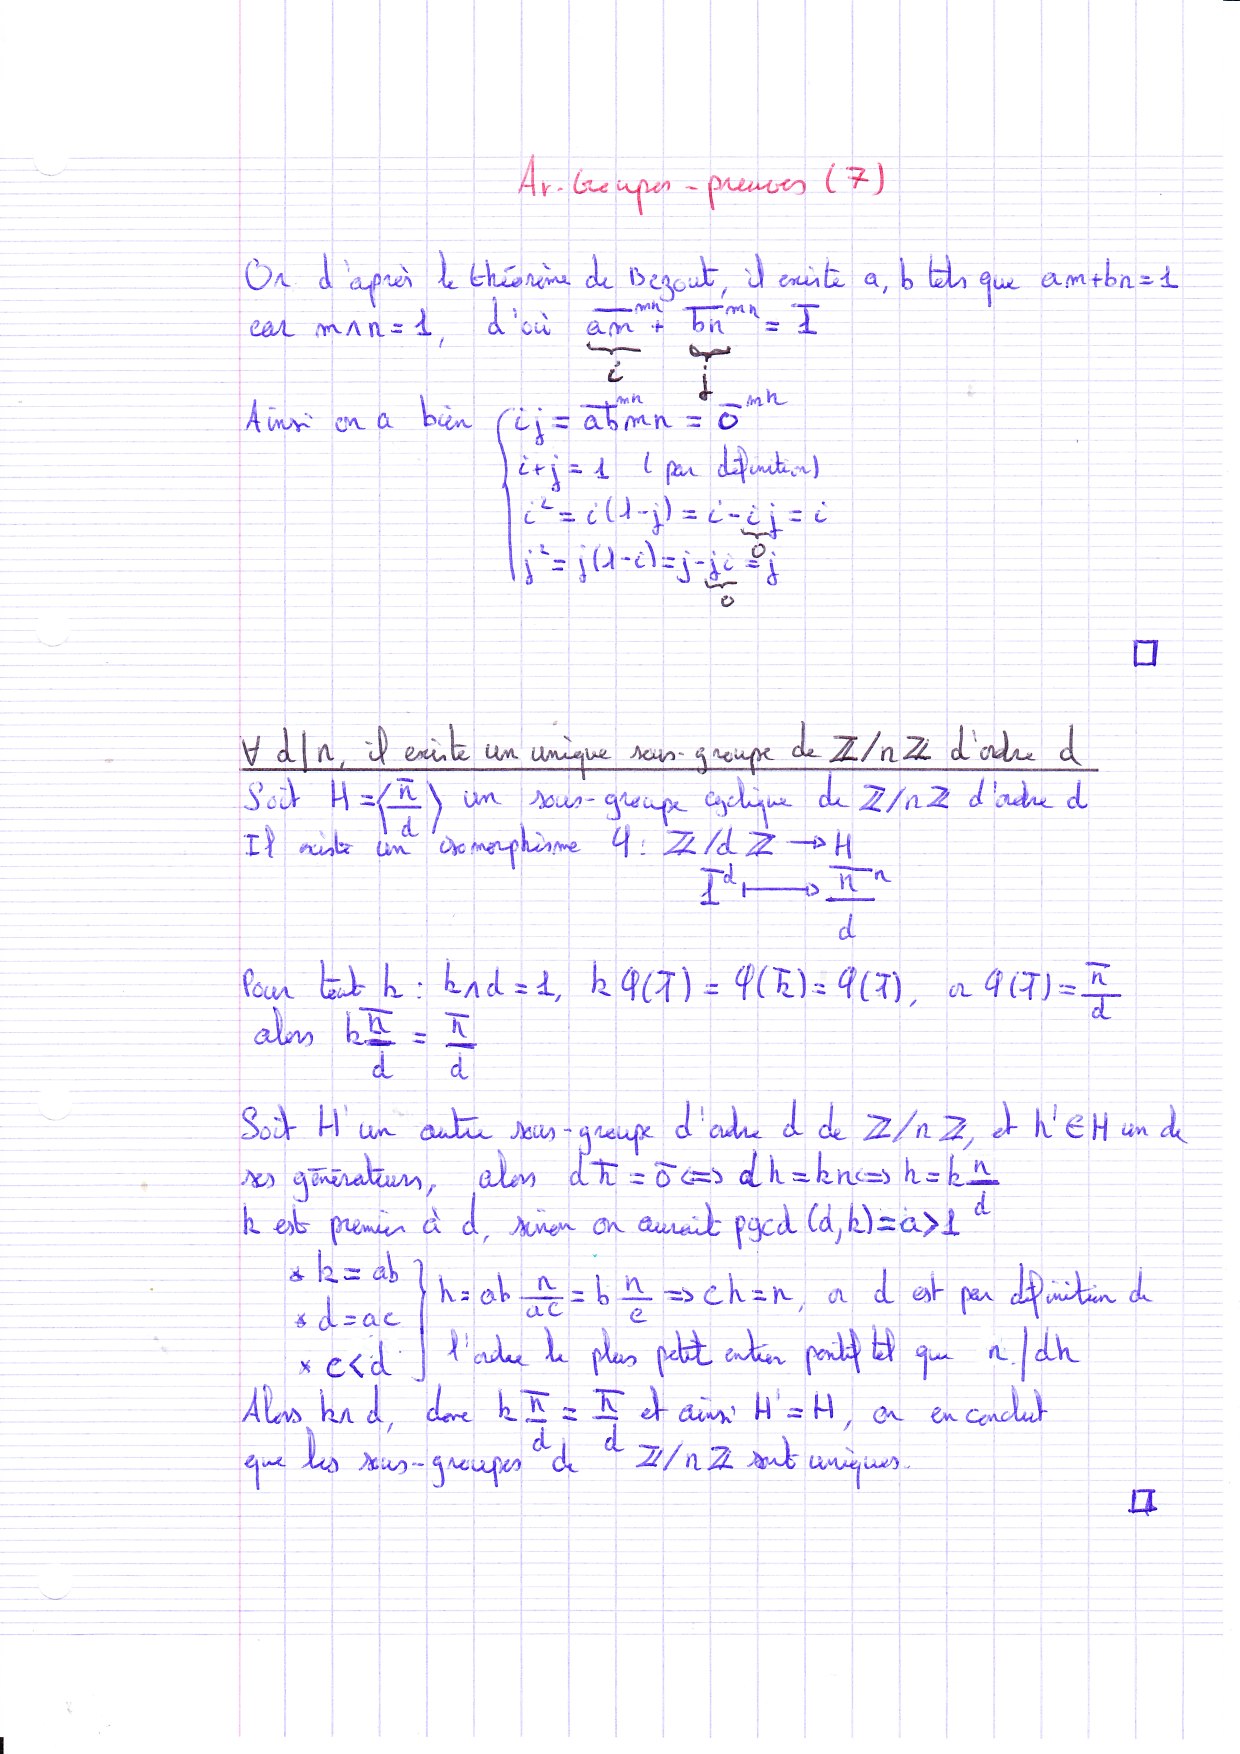 Ar-Groupes-preuves (7)
Or d'après le théorème de Bezout, il existe a, b tels que am+bn=1
car m∧n=1, d'où \overline{am}^{mn} + \overline{bn}^{mn} = \overline{1}
i j
Ainsi on a bien { ij = \overline{ab}^{mn}mn = \overline{0}^{mn}
i+j=1 (par définition)
i²=i(1-j)=i-ij=i
0
j²=j(1-i)=j-ji=j
0
□
∀ d|n, il existe un unique sous-groupe de ℤ/nℤ d'ordre d
Soit H=⟨\overline{n}/d⟩ un sous-groupe cyclique de ℤ/nℤ d'ordre d
Il existe un isomorphisme φ: ℤ/dℤ → H
\overline{1}^d ↦ \overline{n}^n/d
Pour tout k : k∧d=1, kφ(\overline{1}) = φ(\overline{k}) = φ(\overline{1}), or φ(\overline{1}) = \overline{n}/d
alors k\overline{n}/d = \overline{n}/d
Soit H' un autre sous-groupe d'ordre d de ℤ/nℤ, et h'∈H un de
ses générateurs, alors d\overline{h} = \overline{0} ⇔ dh=kn ⇔ h=k n/d
k est premier à d, sinon on aurait pgcd(d,k)=a>1
* k=ab
* d=ac
* c<d
} h=ab n/ac = b n/c ⇒ ch=n, or d est par définition de
l'ordre le plus petit entier positif tel que n/dh
Alors k∧d, donc k\overline{n}/d = \overline{n}/d et ainsi H'=H, on en conclut
que les sous-groupes de ℤ/nℤ sont uniques.
□